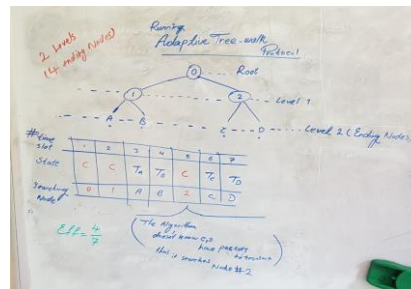 2 Levels
(4 ending Nodes)
Running
Adaptive Tree-walk
Protocol
0 Root
1 2 Level 1
A B
C D Level 2 (Ending Nodes
#time slot 1 2 3 4 5 6 7
State C C TA TB C TC TD
Searching Node 0 1 A B 2 C D
Eff = 4/7
The Algorithm
doesn't know C,D
have packets
to transmit
thus it searches Node #2